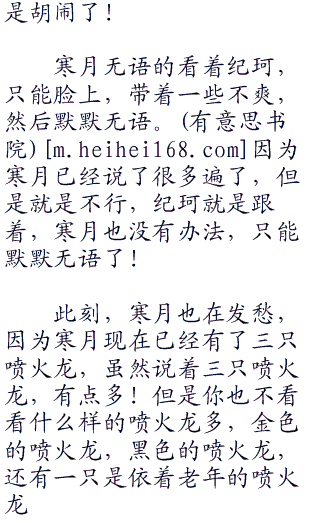 是胡闹了!
寒月无语的看着纪珂,
只能脸上，带着一些不爽，
然后默默无语。(有意思书
院)[m.heihei168.com]因为
寒月已经说了很多遍了，但
是就是不行，纪珂就是跟
着，寒月也没有办法，只能
默默无语了!
此刻，寒月也在发愁，
因为寒月现在已经有了三只
喷火龙，虽然说着三只喷火
龙，有点多！但是你也不看
看什么样的喷火龙多，金色
的喷火龙，黑色的喷火龙，
还有一只是依着老年的喷火
龙